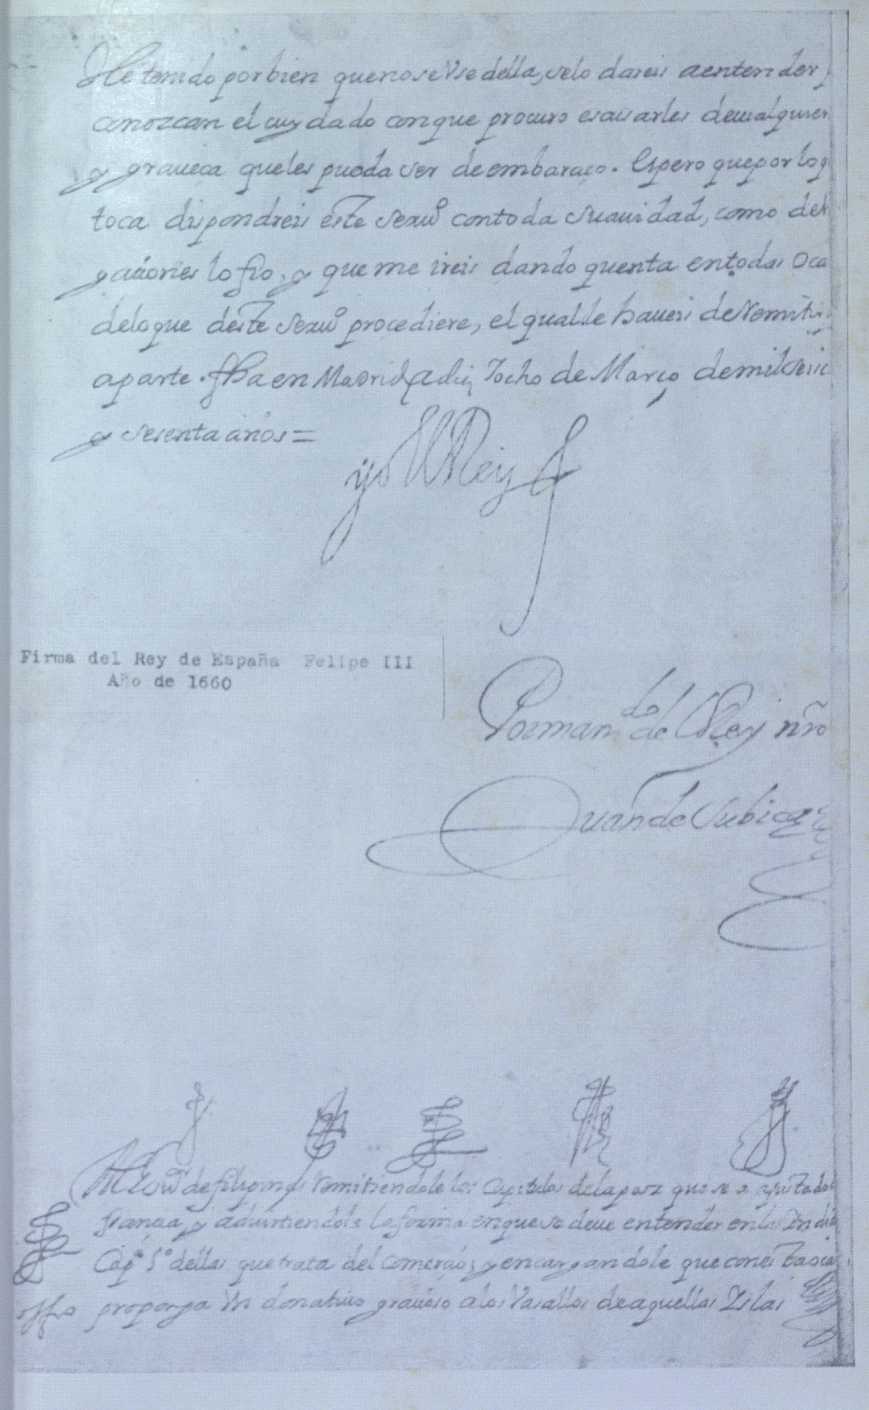 He tenido por bien que no se Vse della, selo dareis a entender
conozcan el cuydado con que procuro escusarles de cualquier
y graueça que les pueda ser de embaraço. Espero que por lo q
toca dispondreis este seruo con toda suauidad, como de
y aciones lo fio, y que me ireis dando quenta en todas Oca
de lo que deste seruo procediere, el qual le haueis de Remitir
aparte. fha en Madrid a diez y ocho de Março de mil seisc
y sesenta años =
yo El Rey
Firma del Rey de España Felipe III
Año de 1660
Por mando del Rey nro
Juan de Subiça
Al Gour de filipinas Remitiendole los Capitulos de la paz que se a ajustado
françia, y aduirtiendole la forma en que se deue entender en las Indias
Cap.º 5º dellas que trata del Comerçio, y encargandole que con esta oca
proponga Vn donatiuo graçioso a los Vasallos de aquellas Yslas